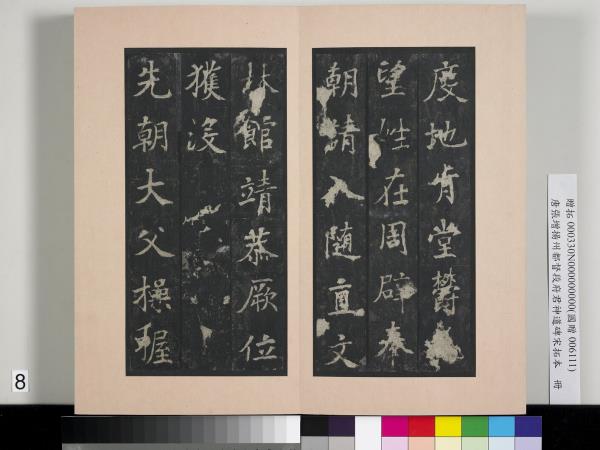 度地肯堂欝
望性在周辟奉
朝請入随直文
林館靖恭厥位
獲没
先朝大父操握
贈拓 000330N000000000(國贈 006111)
唐張增揚州都督段府君神道碑宋拓本 冊
8